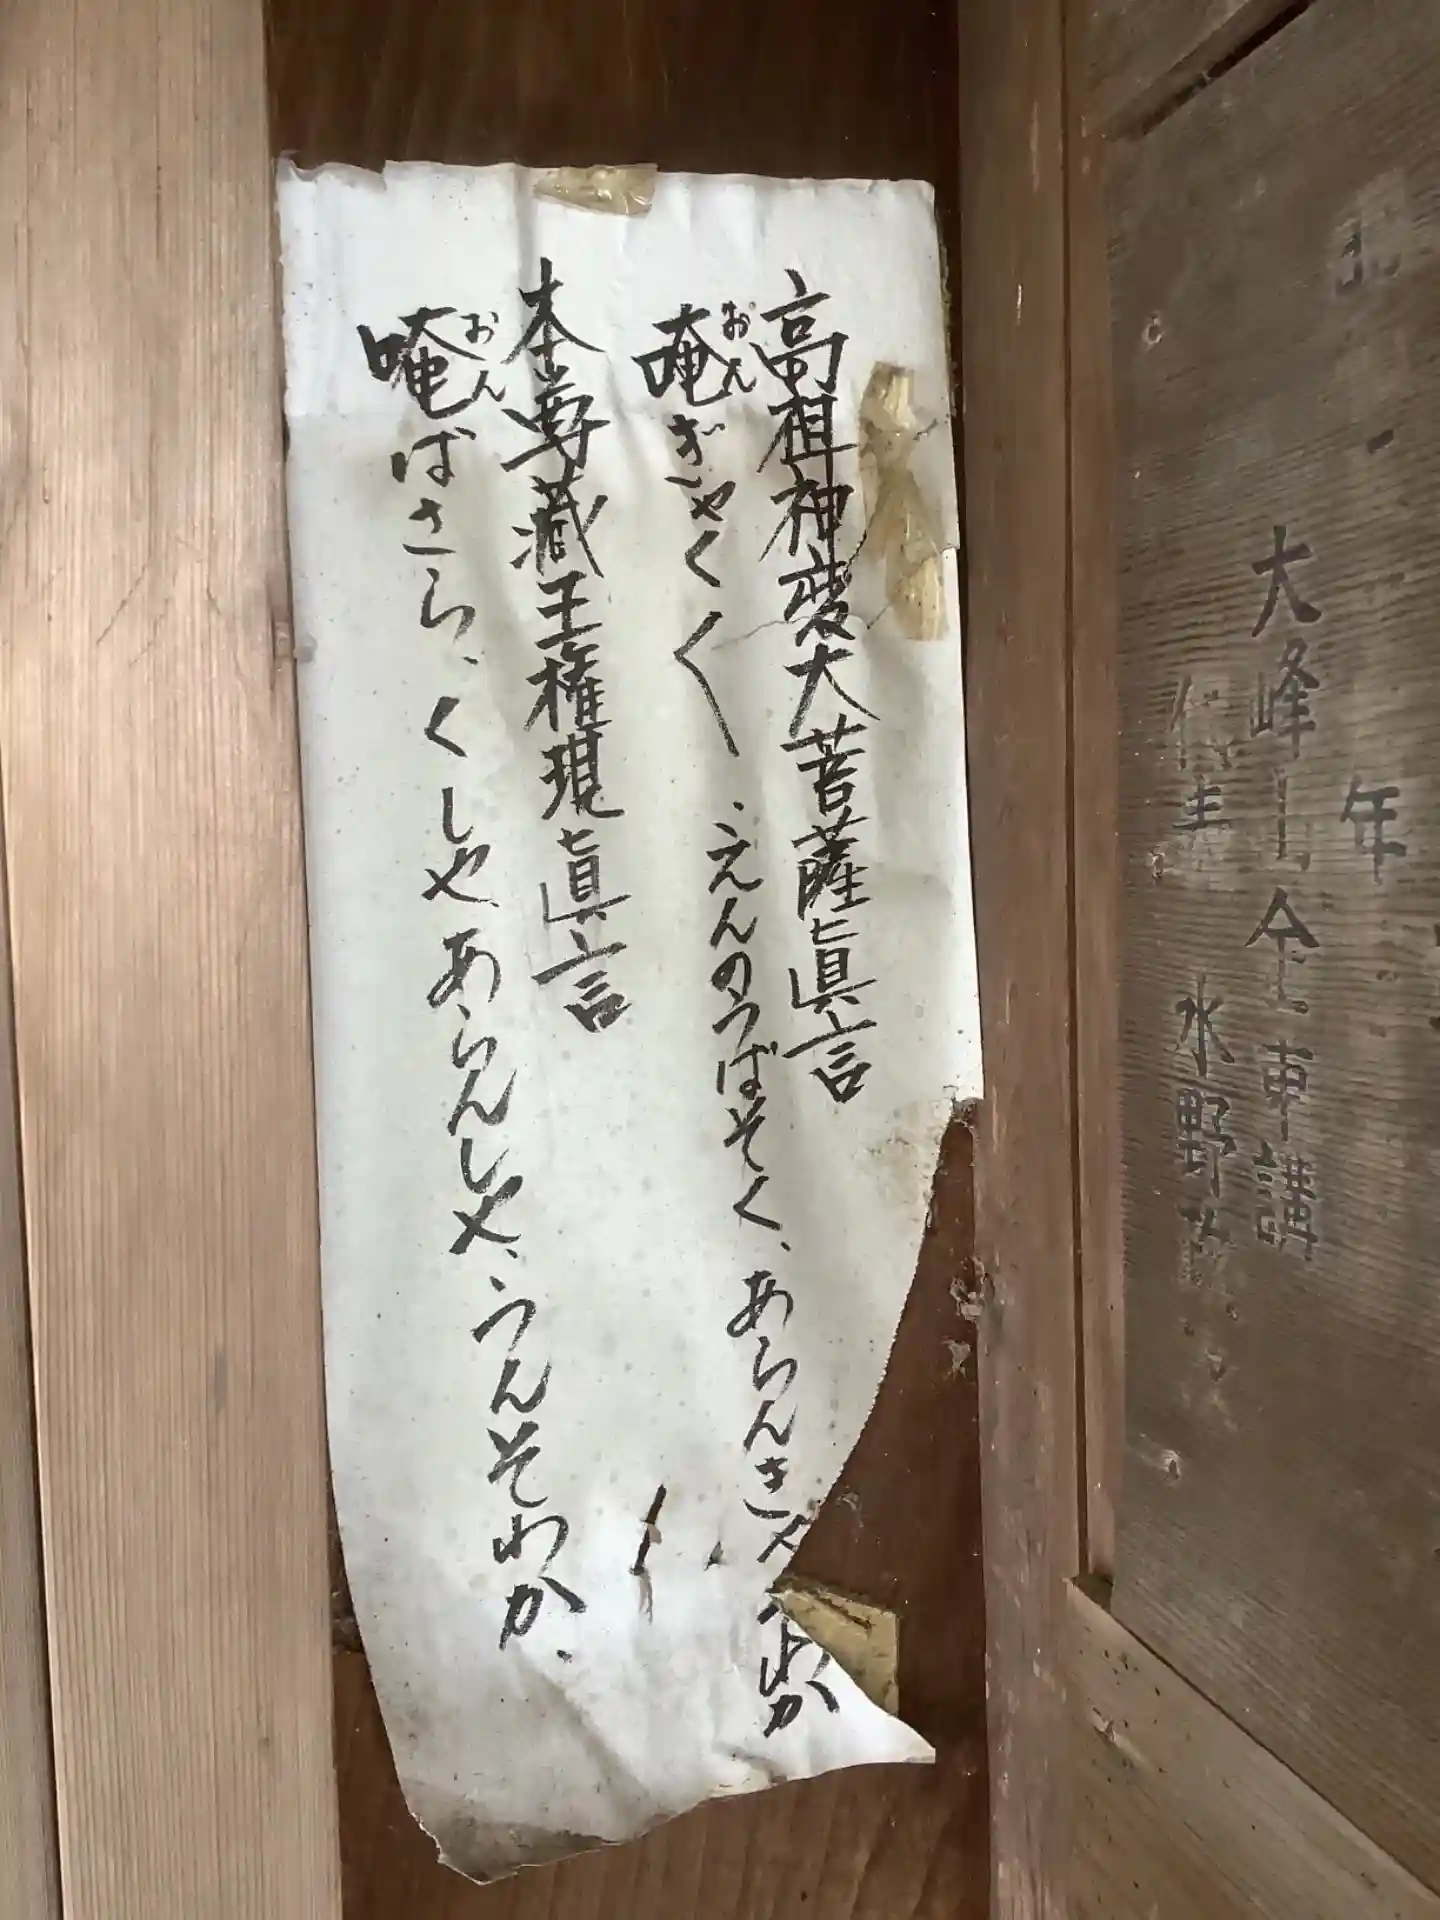 年
大峰山 講
代表 水野
高祖神変大菩薩眞言
唵おんぎゃくく、えんのうばそく、あらんきゃ わか
本尊蔵王権現眞言
唵おんばさら、くしやあらんしや、うんそわか、